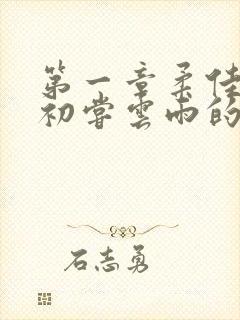 第一章柔佳
初尝雲雨的
石志勇